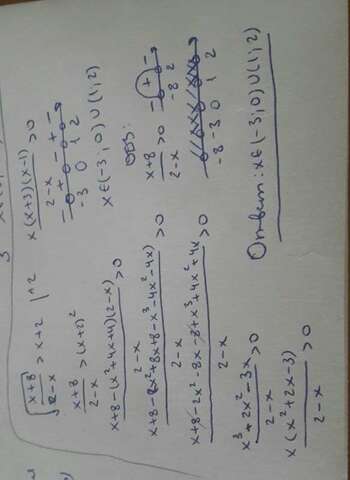 √(x+8)/(2-x) > x+2 |^2
(x+8)/(2-x) > (x+2)^2
(x+8-(x^2+4x+4)(2-x))/(2-x) > 0
(x+8-2x^2+8x+8-x^3-4x^2-4x)/(2-x) > 0
(x+8-2x^2-8x-8+x^3+4x^2+4x)/(2-x) > 0
(x^3+2x^2-3x)/(2-x) > 0
x(x^2+2x-3)/(2-x) > 0
x(x+3)(x-1)/(2-x) > 0
- + - + -
-3 0 1 2
x∈(-3;0)∪(1;2)
ОДЗ:
(x+8)/(2-x) > 0
- + -
-8 2
-8 -3 0 1 2
Ответ: x∈(-3;0)∪(1;2)